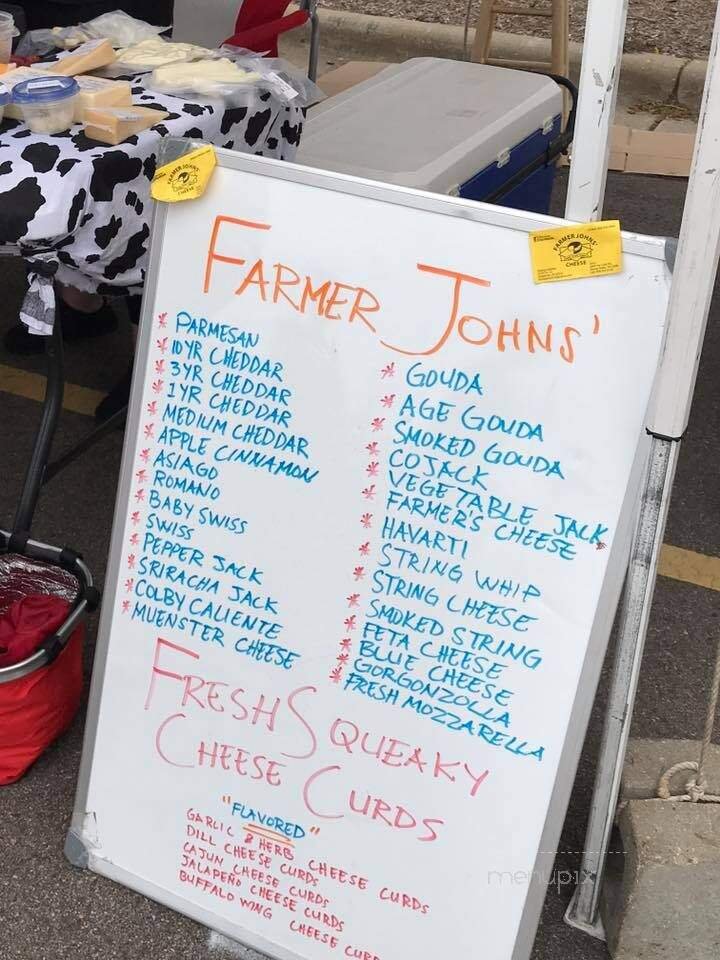 FARMER JOHNS'
* PARMESAN
* 10YR CHEDDAR
* 3YR CHEDDAR
* 1YR CHEDDAR
* MEDIUM CHEDDAR
* APPLE CINNAMON
* ASIAGO
* ROMANO
* BABY SWISS
* SWISS
* PEPPER JACK
* SRIRACHA JACK
* COLBY CALIENTE
* MUENSTER CHEESE
* GOUDA
* AGE GOUDA
* SMOKED GOUDA
* COJACK
* VEGETABLE JACK
* FARMER'S CHEESE
* HAVARTI
* STRING WHIP
* STRING CHEESE
* SMOKED STRING
* FETA CHEESE
* BLUE CHEESE
* GORGONZOLLA
* FRESH MOZZARELLA
FRESH SQUEAKY
CHEESE CURDS
"FLAVORED"
GARLIC & HERB CHEESE CURDS
DILL CHEESE CURDS
CAJUN CHEESE CURDS
JALAPEÑO CHEESE CURDS
BUFFALO WING CHEESE CURD
FARMER JOHNS'
CHEESE
menupix